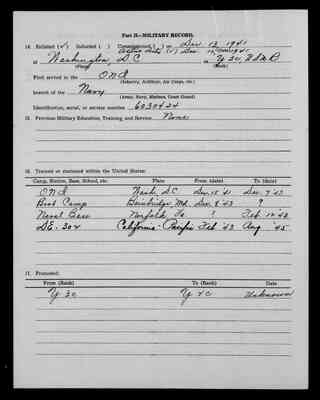 Part II—MILITARY RECORD.
14. Enlisted (✓) Inducted ( ) Commissioned ( ) on Dec. 12, 1941
Active duty (✓) Dec. 15, 1941
at Washington, D.C. as Y 3c, USNR
(Place)
First served in the ONI
(Infantry, Artillery, Air Corps, etc.)
branch of the Navy
(Army, Navy, Marines, Coast Guard)
Identification, serial, or service number 6030424
15. Previous Military Education, Training, and Service. None
16. Trained or stationed within the United States:
Camp, Station, Base, School, etc. Place From (date) To (date)
ONI Wash. D.C. Dec. 15 '41 Dec. 7 '43
Boot Camp Bainbridge, Md. Dec. 8 '43 ?
Naval Base Norfolk, Va ? Feb.
DE-302 California-Pacific Feb '43 Aug '45
17. Promoted:
From (Rank) To (Rank) Date
Y 3c Y 2c Unknown